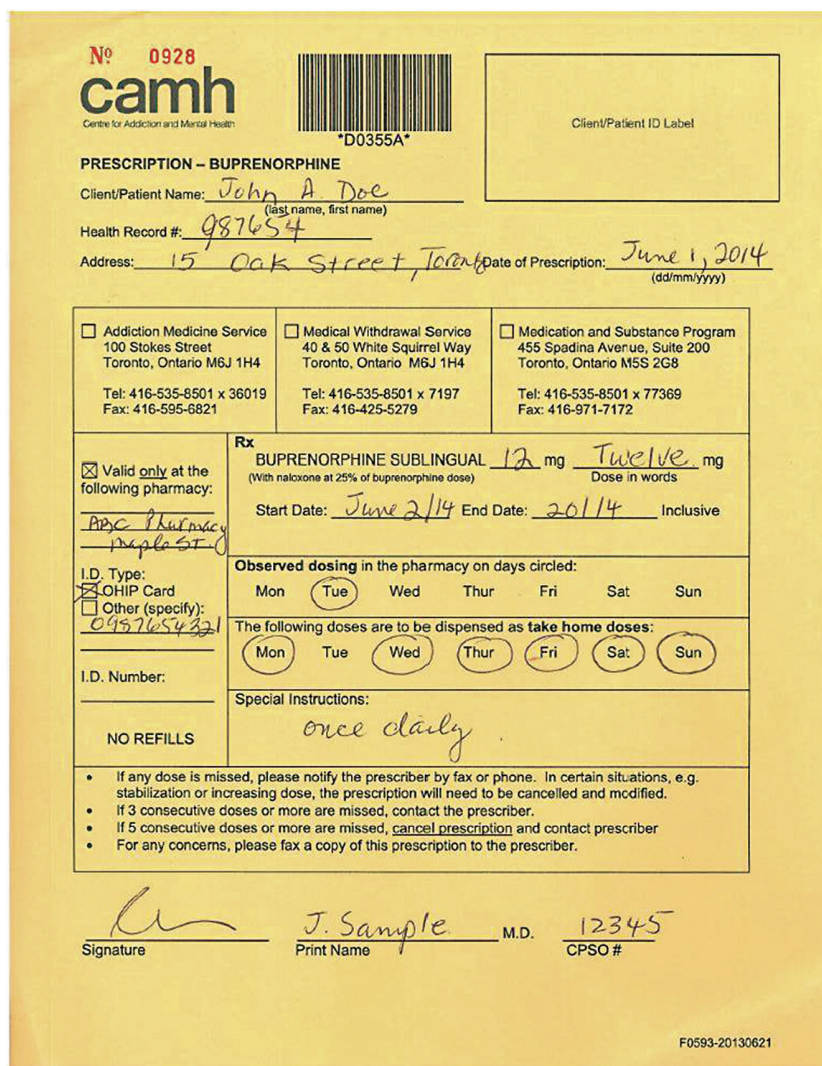 Nº 0928
camh
Centre for Addiction and Mental Health
*D0355A*
Client/Patient ID Label
PRESCRIPTION – BUPRENORPHINE
Client/Patient Name: John A. Doe
(last name, first name)
Health Record #: 987654
Address: 15 Oak Street, Toronto Date of Prescription: June 1, 2014
(dd/mm/yyyy)
Addiction Medicine Service
100 Stokes Street
Toronto, Ontario M6J 1H4
Tel: 416-535-8501 x 36019
Fax: 416-595-6821
Medical Withdrawal Service
40 & 50 White Squirrel Way
Toronto, Ontario M6J 1H4
Tel: 416-535-8501 x 7197
Fax: 416-425-5279
Medication and Substance Program
455 Spadina Avenue, Suite 200
Toronto, Ontario M5S 2G8
Tel: 416-535-8501 x 77369
Fax: 416-971-7172
Valid only at the
following pharmacy:
ABC Pharmacy
Maple ST.
I.D. Type:
OHIP Card
Other (specify):
0987654321
I.D. Number:
NO REFILLS
Rx
BUPRENORPHINE SUBLINGUAL 12 mg Twelve mg
(With naloxone at 25% of buprenorphine dose) Dose in words
Start Date: June 2/14 End Date: 20/14 Inclusive
Observed dosing in the pharmacy on days circled:
Mon Tue Wed Thur Fri Sat Sun
The following doses are to be dispensed as take home doses:
Mon Tue Wed Thur Fri Sat Sun
Special Instructions:
once daily.
• If any dose is missed, please notify the prescriber by fax or phone. In certain situations, e.g.
stabilization or increasing dose, the prescription will need to be cancelled and modified.
• If 3 consecutive doses or more are missed, contact the prescriber.
• If 5 consecutive doses or more are missed, cancel prescription and contact prescriber
• For any concerns, please fax a copy of this prescription to the prescriber.
J. Sample M.D. 12345
Signature Print Name CPSO #
F0593-20130621